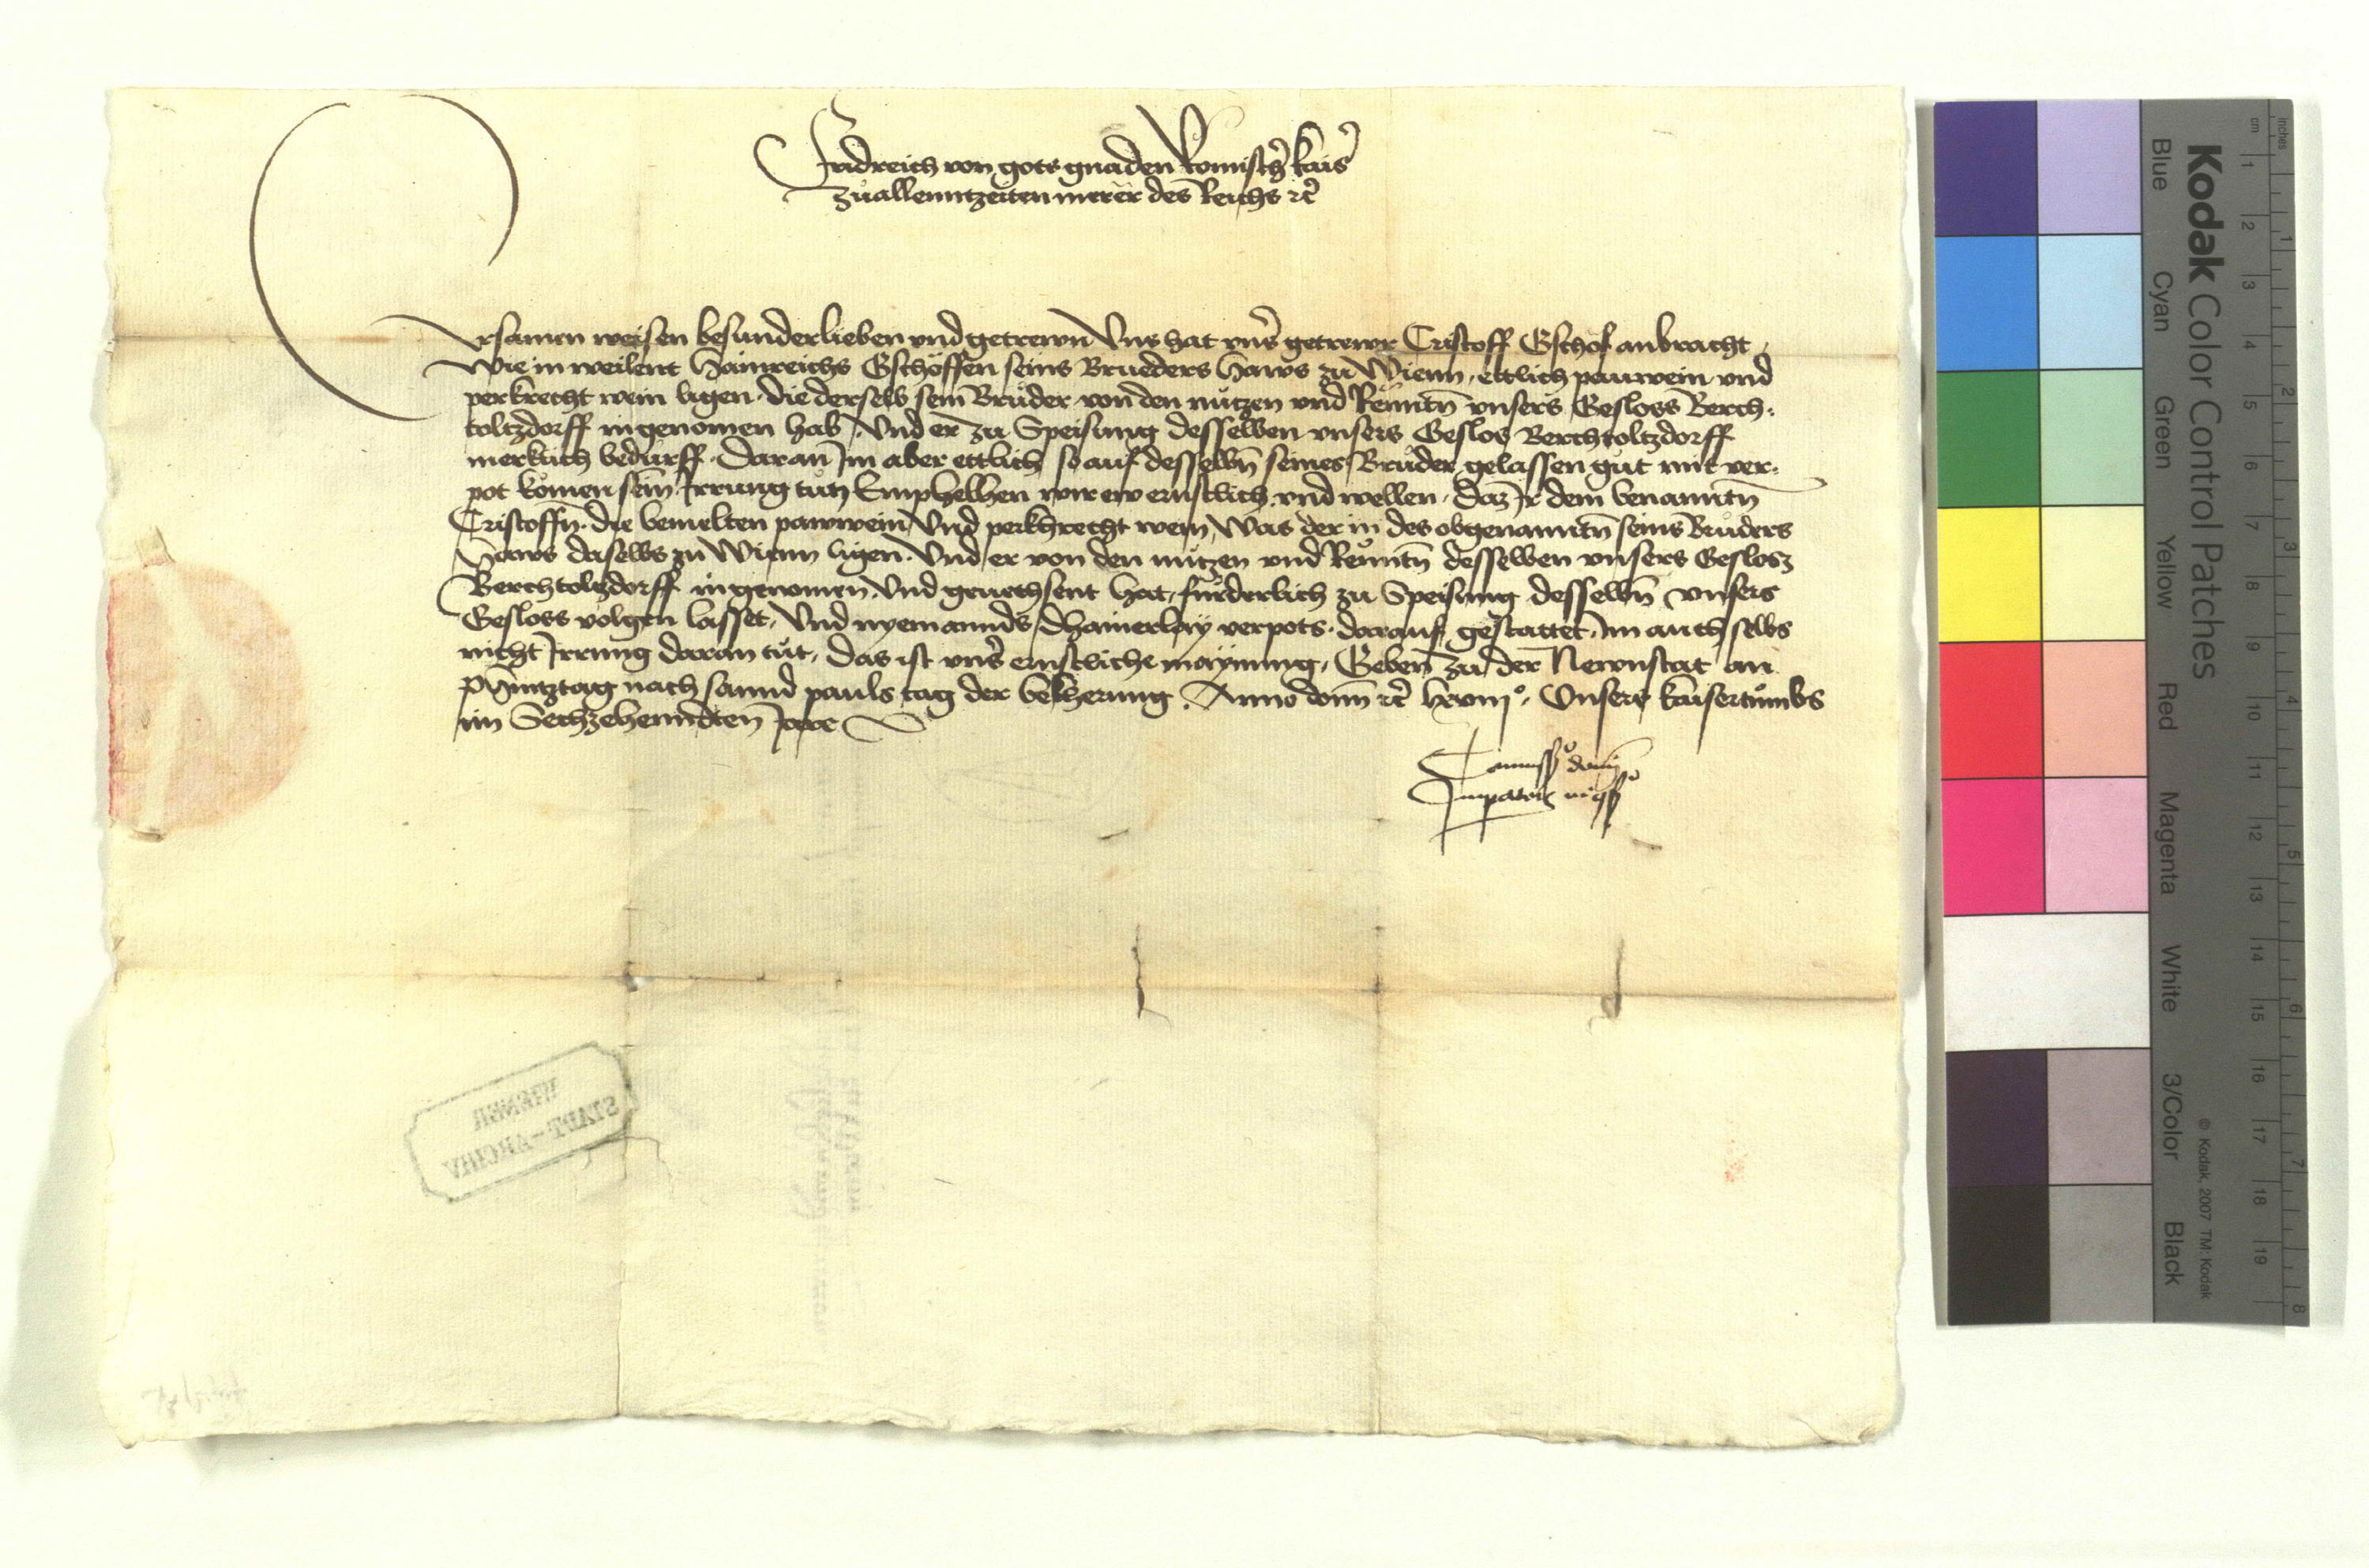 Fridreich von gots gnaden Romischer kaiser
zuallenntzeiten merer des Reichs etc
Ersamen weisen besunderlieben vnd getrewn Vns hat vnser getrewr Cristoff Gschöf anbracht
Wie in weilent Hainreichs Gschöffen seins Brueders Haws zu Wienn, ettlich pauwein vnd
perkrecht wein ligen. die derselb sein Brüder von den nützen vnd Rennttn vnsers Gesloss Berch-
toltzdorff ingenomen hab, Vnd er zu Speisung desselben vnsers Geslos Berchtoltzdorff
merklich bedürff. Daran Im aber ettlich so auf desselbn seines Brüder gelassen güt mit ver-
pot komen sein Irrung tün Emphelhen wir ew ernstlich vnd wellen. daz Ir dem benanntn
Cristoffn. die bemelten pawwein Vnd perkhrecht wein, Was der in des obgenanntn seins Brüders
Haws daselbs zu Wienn ligen. Vnd er von den nützen vnd Renntn desselben vnsers Geslosz
Berchtoltzdorff ingenomen, Vnd geuechsent hat, fürderlich zu Speisung desselbn vnsers
Gesloss volgen lasset, Vnd nyemannds dhainerlay verpots. darauf gestattet, Im auch selbs
nicht Irrung daran tüt, Das ist vnser ernstliche maynung, Geben zu der Newnstat an
Phintztag nach sannd pauls tag der bekherung. Anno domini etc lxviijo. Vnsers kaisertumbs
im Sechzehenndten Jare
Commissio domini
Imperatoris
WIENER
STADT-ARCHIV
Kodak Color Control Patches
Blue Cyan Green Yellow Red Magenta White 3/Color Black
© Kodak, 2007 TM: Kodak
cm 1 2 3 4 5 6 7 8 9 10 11 12 13 14 15 16 17 18 19
inches 1 2 3 4 5 6 7 8